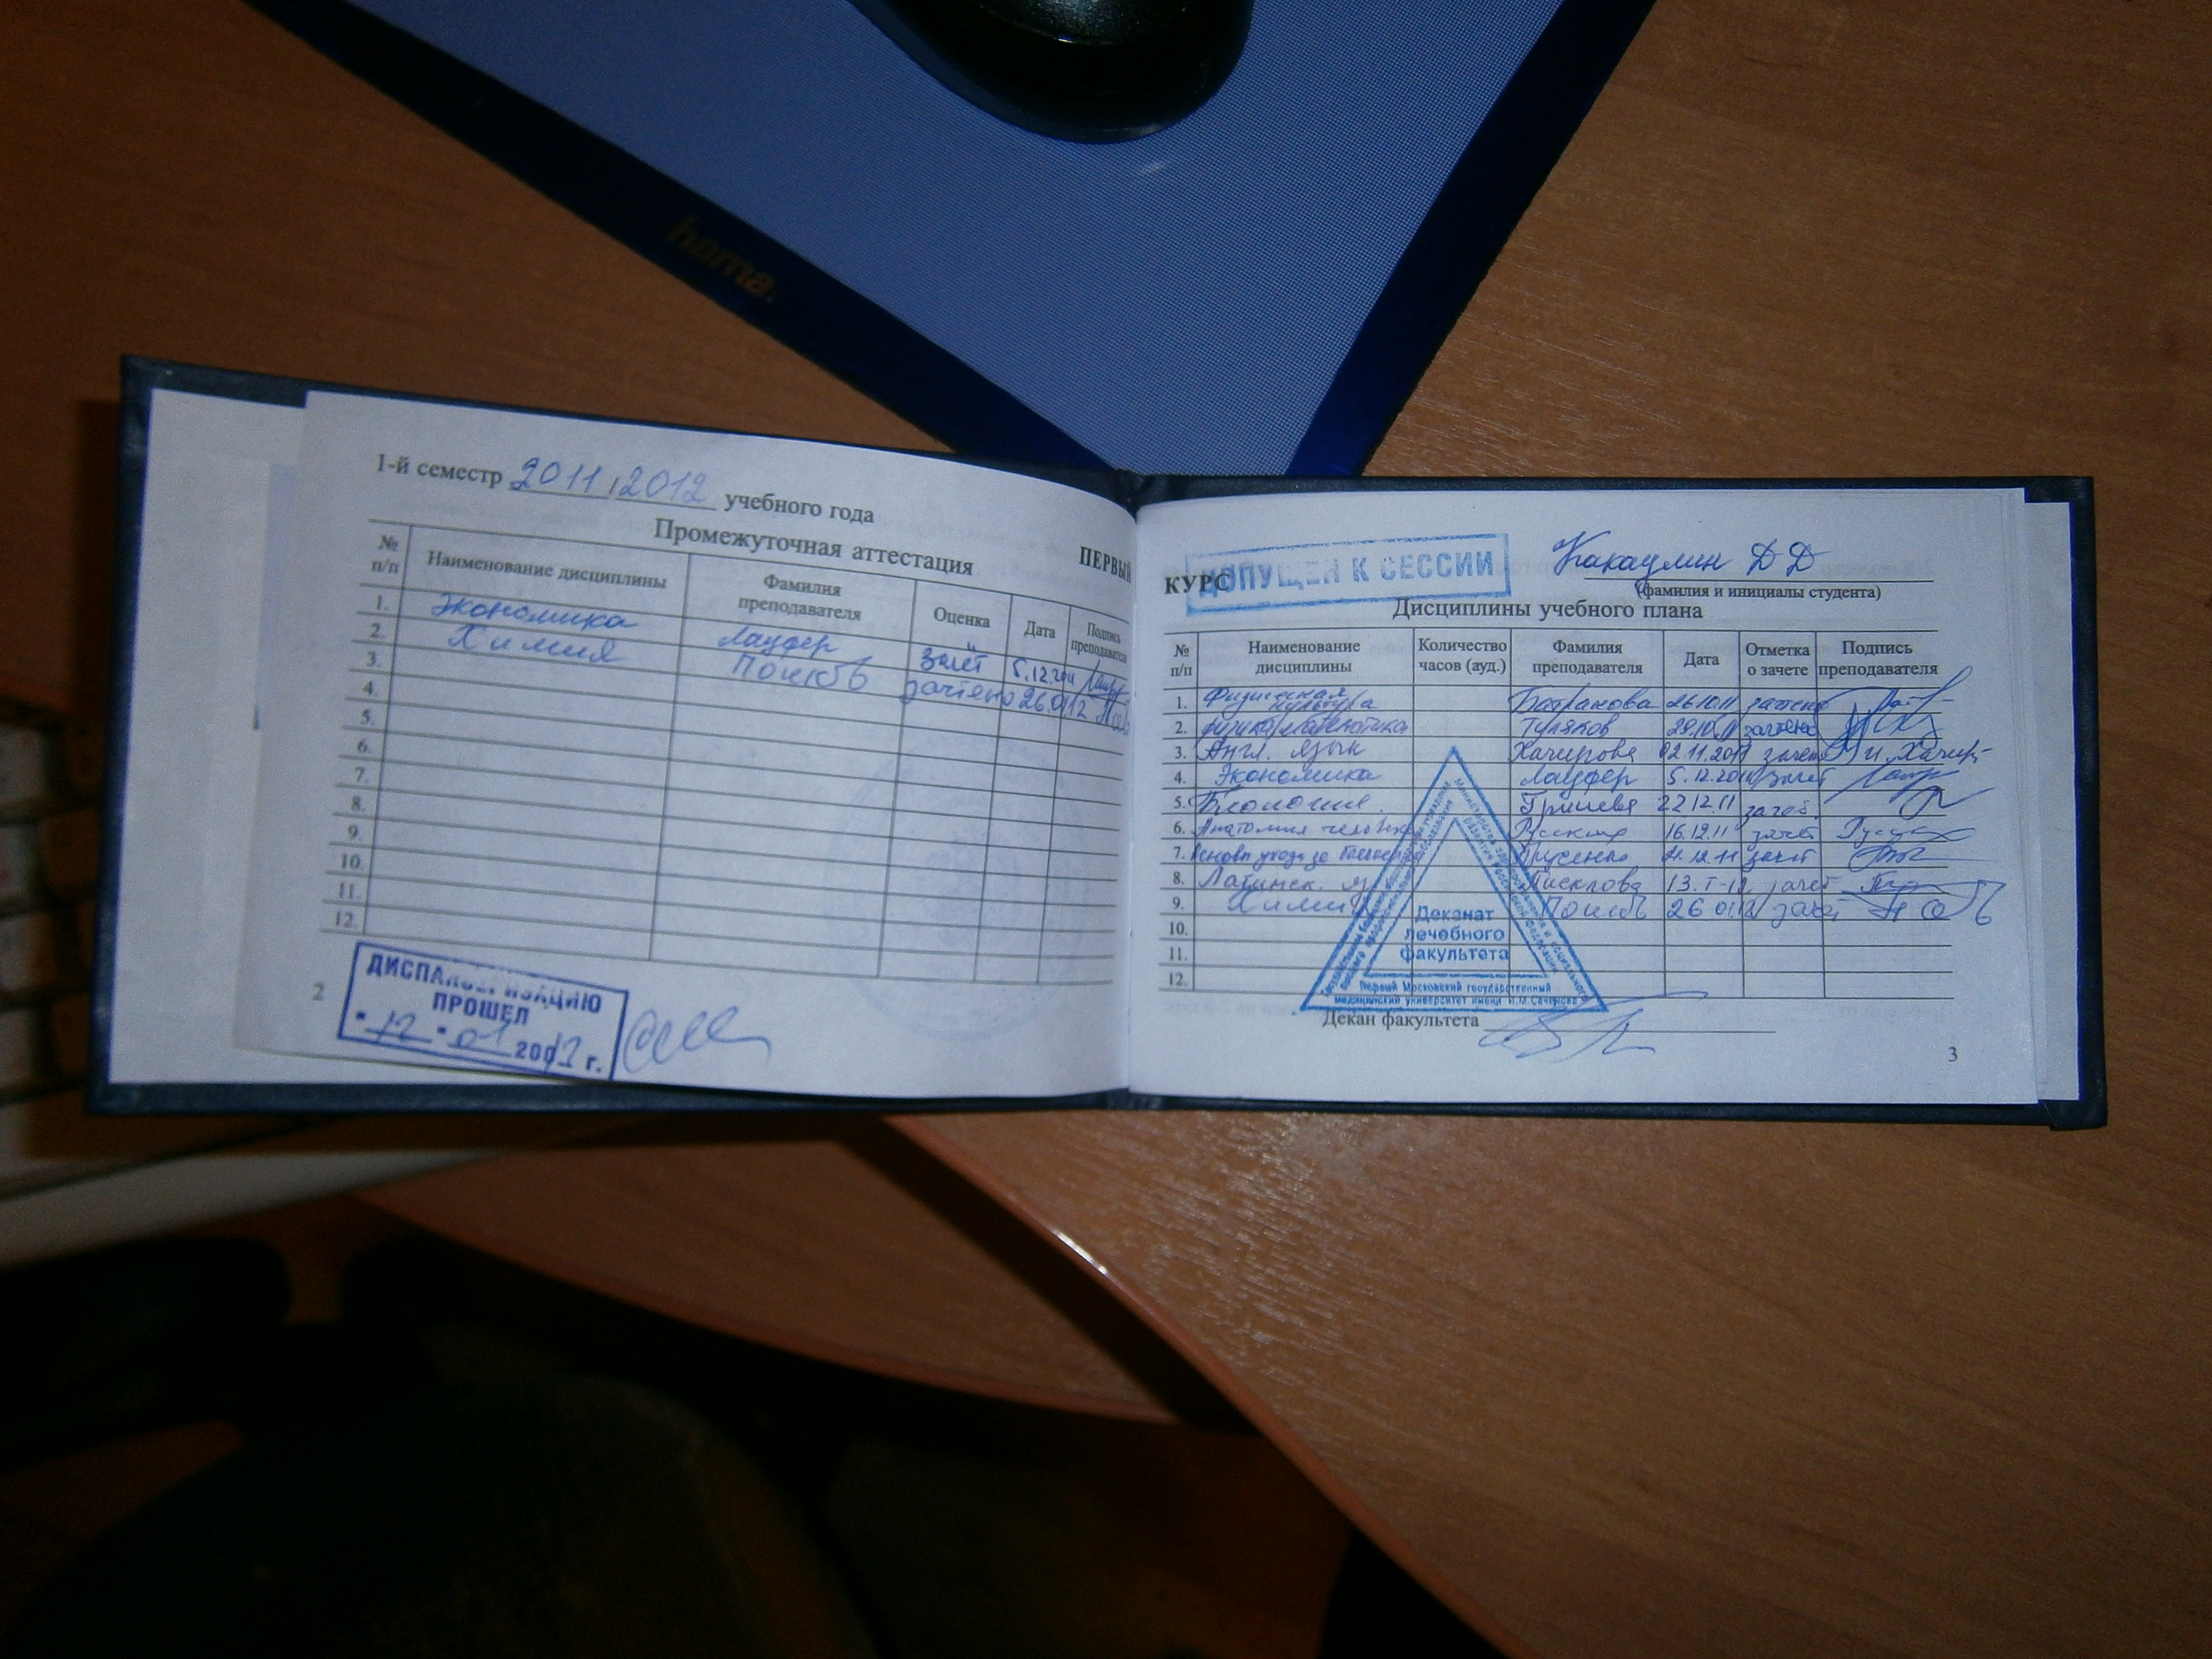 hama.
1-й семестр 2011/2012 учебного года
Промежуточная аттестация
ПЕРВЫЙ
№ п/п Наименование дисциплины Фамилия преподавателя Оценка Дата Подпись преподавателя
1. Экономика Лауфер зачёт 5.12.2011
2. Химия зачтено 26.01.12
3.
4.
5.
6.
7.
8.
9.
10.
11.
12.
2
ДИСПАНСЕРИЗАЦИЮ
ПРОШЕЛ
"12" 01 2012 г.
ДОПУЩЕН К СЕССИИ
КУРС
Д Д
(фамилия и инициалы студента)
Дисциплины учебного плана
№ п/п Наименование дисциплины Количество часов (ауд.) Фамилия преподавателя Дата Отметка о зачете Подпись преподавателя
1. Физическая культура 26.10.11 зачтено
2. Туляков 29.10.11 зачтено
3. Англ. язык Хачирова 02.11.2011 зачет
4. Экономика Лауфер 5.12.2011 зачет
5. Биология 22.12.11
6. Анатомия человека Русских 16.12.11 зачет
7. Основы ухода за зачет
8. Латинск. я зачет
9. Химия 26 01 12 зачет
10.
11.
12.
Деканат
лечебного
факультета
Первый Московский государственный
медицинский университет имени И.М.Сеченова
Декан факультета
3